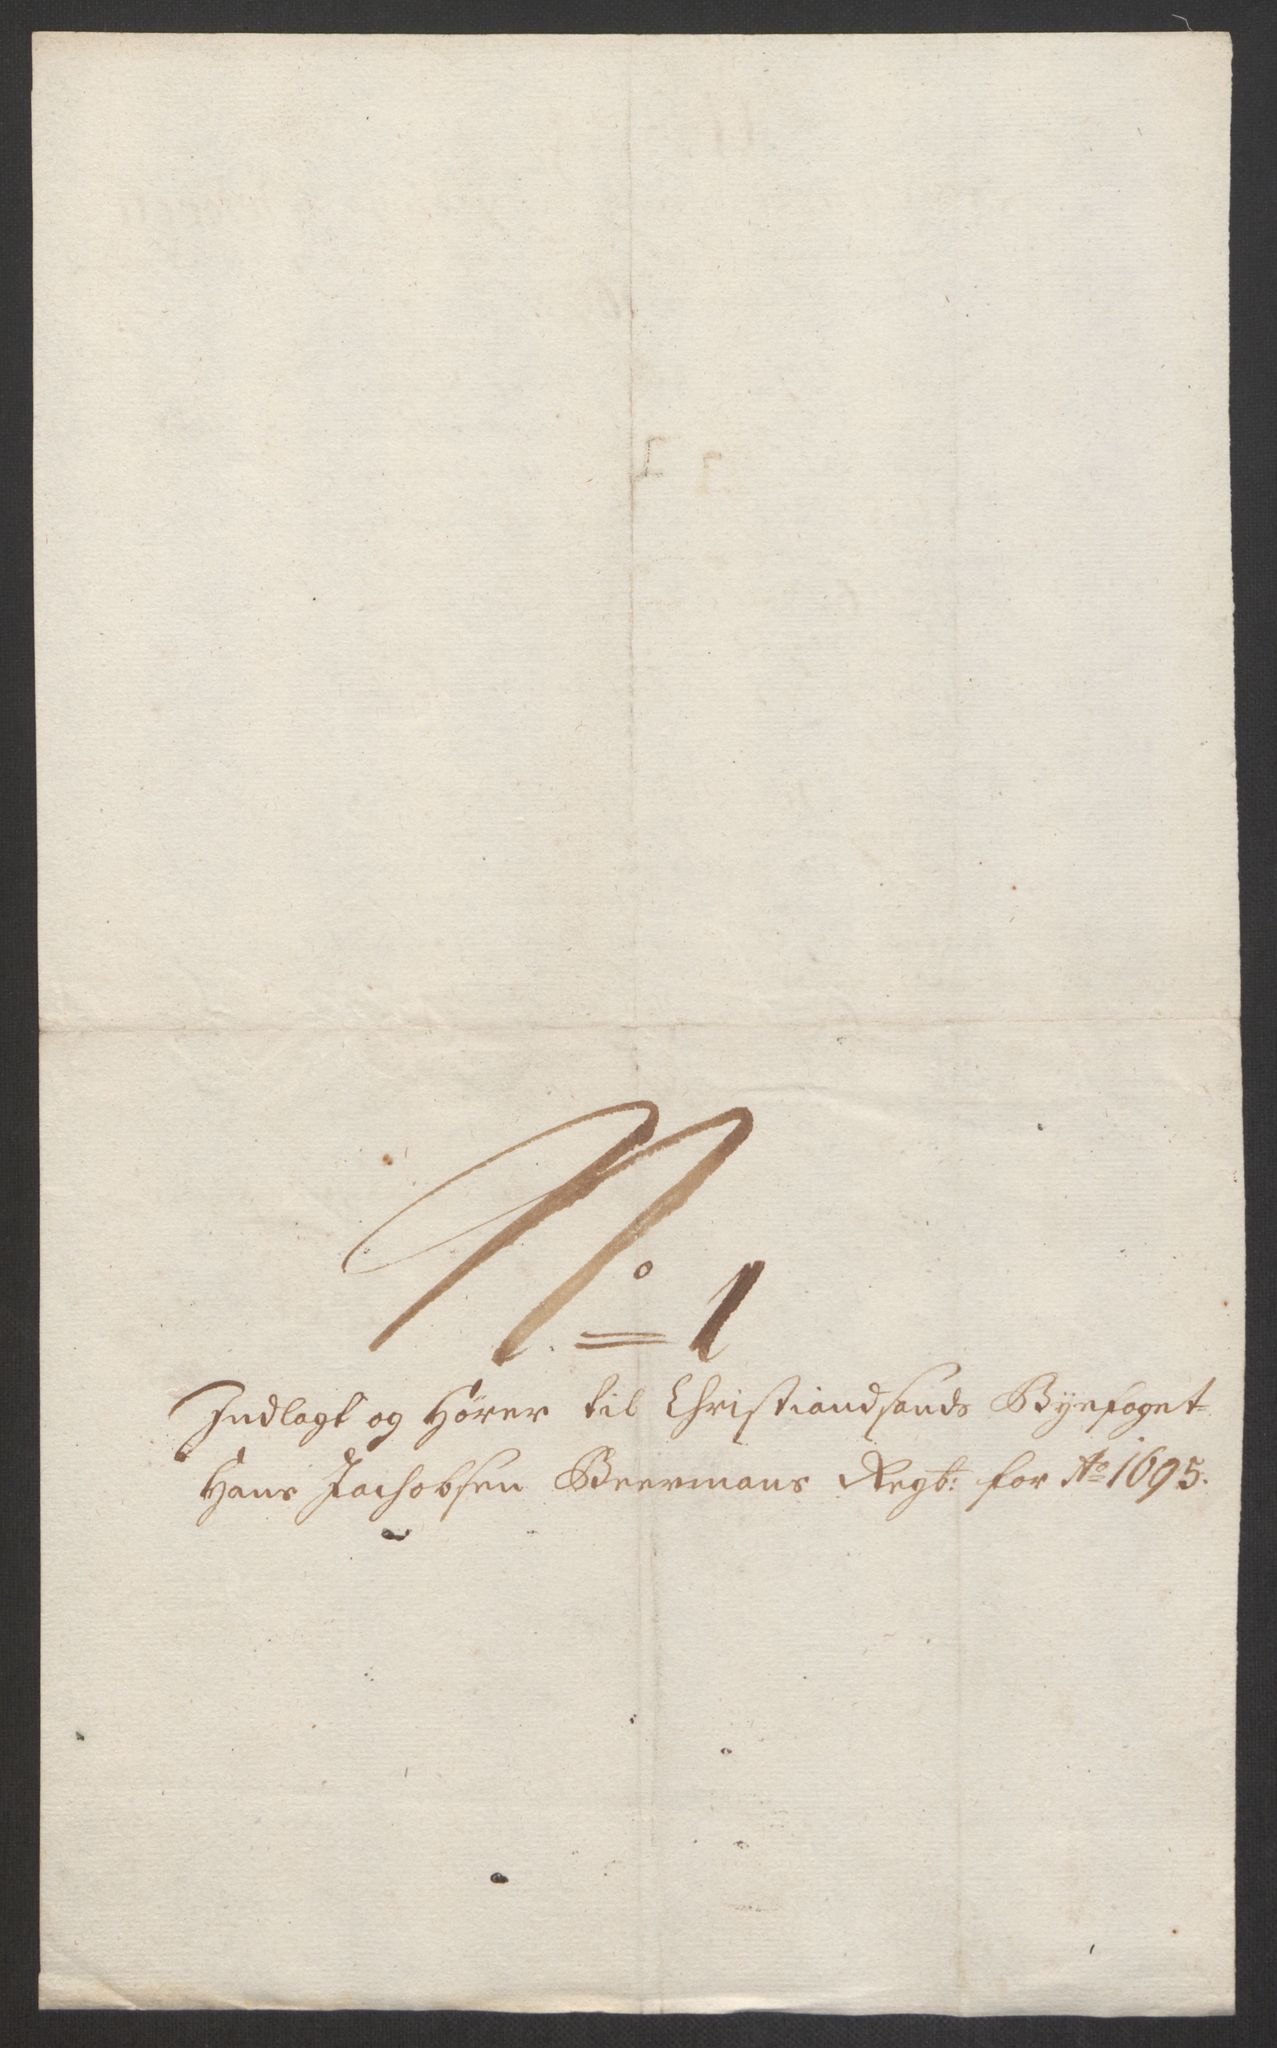 No 1
Indlagt og Hører til Christiandsands Byefoget
Hans Jachobsen Beermans Regb: for Ao 1695.